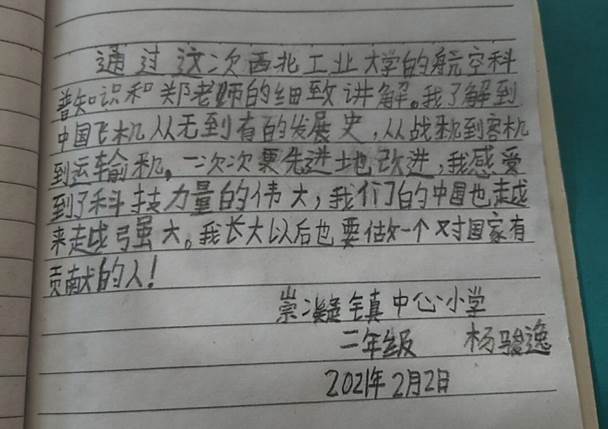 通过这次西北工业大学的航空科
普知识和郑老师的细致讲解。我了解到
中国飞机从无到有的发展史，从战机到客机
到运输机。一次次更先进地改进，我感受
到了科技力量的伟大，我们的中国也越
来越强大。我长大以后也要做一个对国家有
贡献的人！
崇凝镇中心小学
二年级 杨骏逸
2021年2月2日